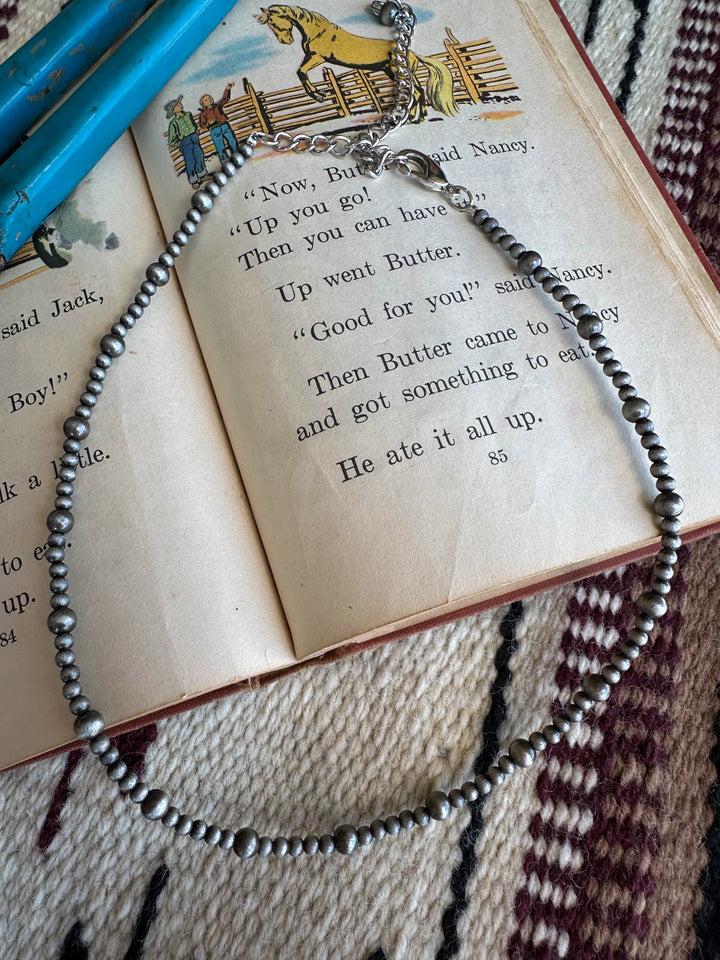 said Jack,
Boy!"
a little.
to
up.
84
"Now, said Nancy.
"Up you go!
Then you can have
Up went Butter.
"Good for you!" said Nancy.
Then Butter came to Nancy
and got something to eat.
He ate it all up.
85